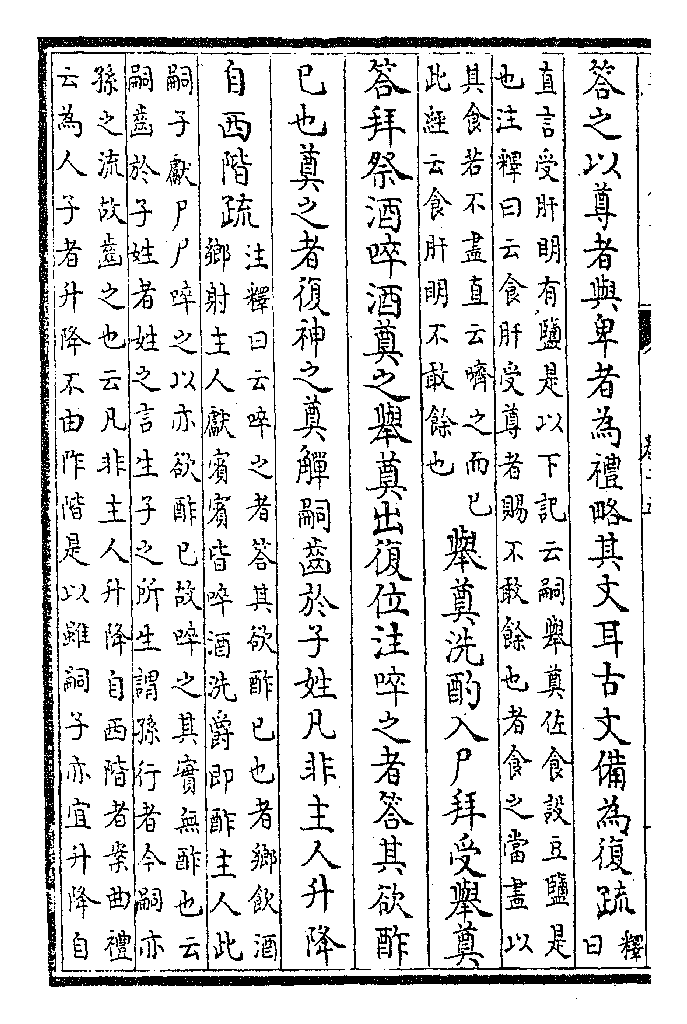 答之以尊者與卑者為禮略其文耳古文備為復疏
釋
曰
直言受肝明有鹽是以下記云嗣舉奠佐食設豆鹽是
也注釋曰云食肝受尊者賜不敢餘也者食之當盡以
其食若不盡直云嚌之而已
此經云食肝明不敢餘也
舉奠洗酌入尸拜受舉奠
答拜祭酒啐酒奠之舉奠出復位注啐之者答其欲酢
已也奠之者復神之奠觶嗣齒於子姓凡非主人升降
自西階疏
注釋曰云啐之者答其欲酢已也者鄉飲酒
鄉射主人獻賓賓皆啐酒洗爵即酢主人此
嗣子獻尸尸啐之以亦欲酢已故啐之其實無酢也云
嗣齒於子姓者姓之言生子之所生謂孫行者今嗣亦
孫之流故齒之也云凡非主人升降自西階者案曲禮
云為人子者升降不由阼階是以雖嗣子亦宜升降自